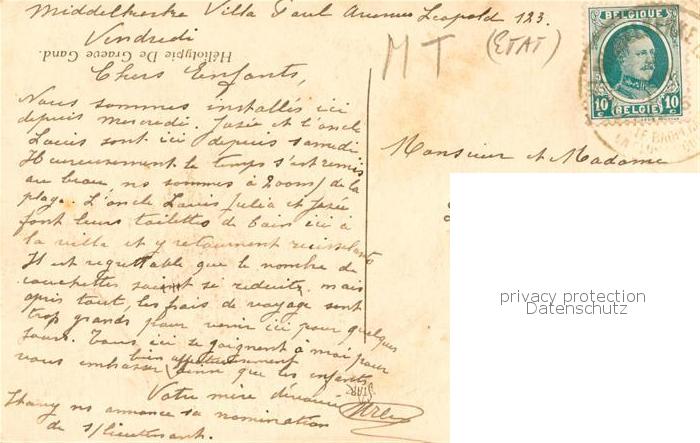 Middelkerke Villa Paul Avenue Léopold 123.
Vendredi
Héliotypie De Graeve Gand.
M T (ETAT)
BELGIQUE
10 10
BELGIE
Chers Enfants,
Nous sommes installés ici
depuis mercredi. Josée et l'oncle
Louis sont ici depuis samedi
Heureusement le temps s'est remis
au beau, ns sommes à 200m/ de la
plage. L'oncle Louis Julia et Josée
font leurs toilettes de bain ici à
la villa et y retournent ruisselants
Il est regrettable que le nombre de
couchettes soient si reduits, mais
après tout, les frais de voyage sont
trop grands pour venir ici pour quelques
jours. Tous ici se joignent à moi pour
vous embrasser bien affectueusement
ainsi que les enfants
Votre mère dévouée
Stany ns annonce sa nomination
de s/lieutenant.
Monsieur et Madame
STAR
privacy protection
Datenschutz